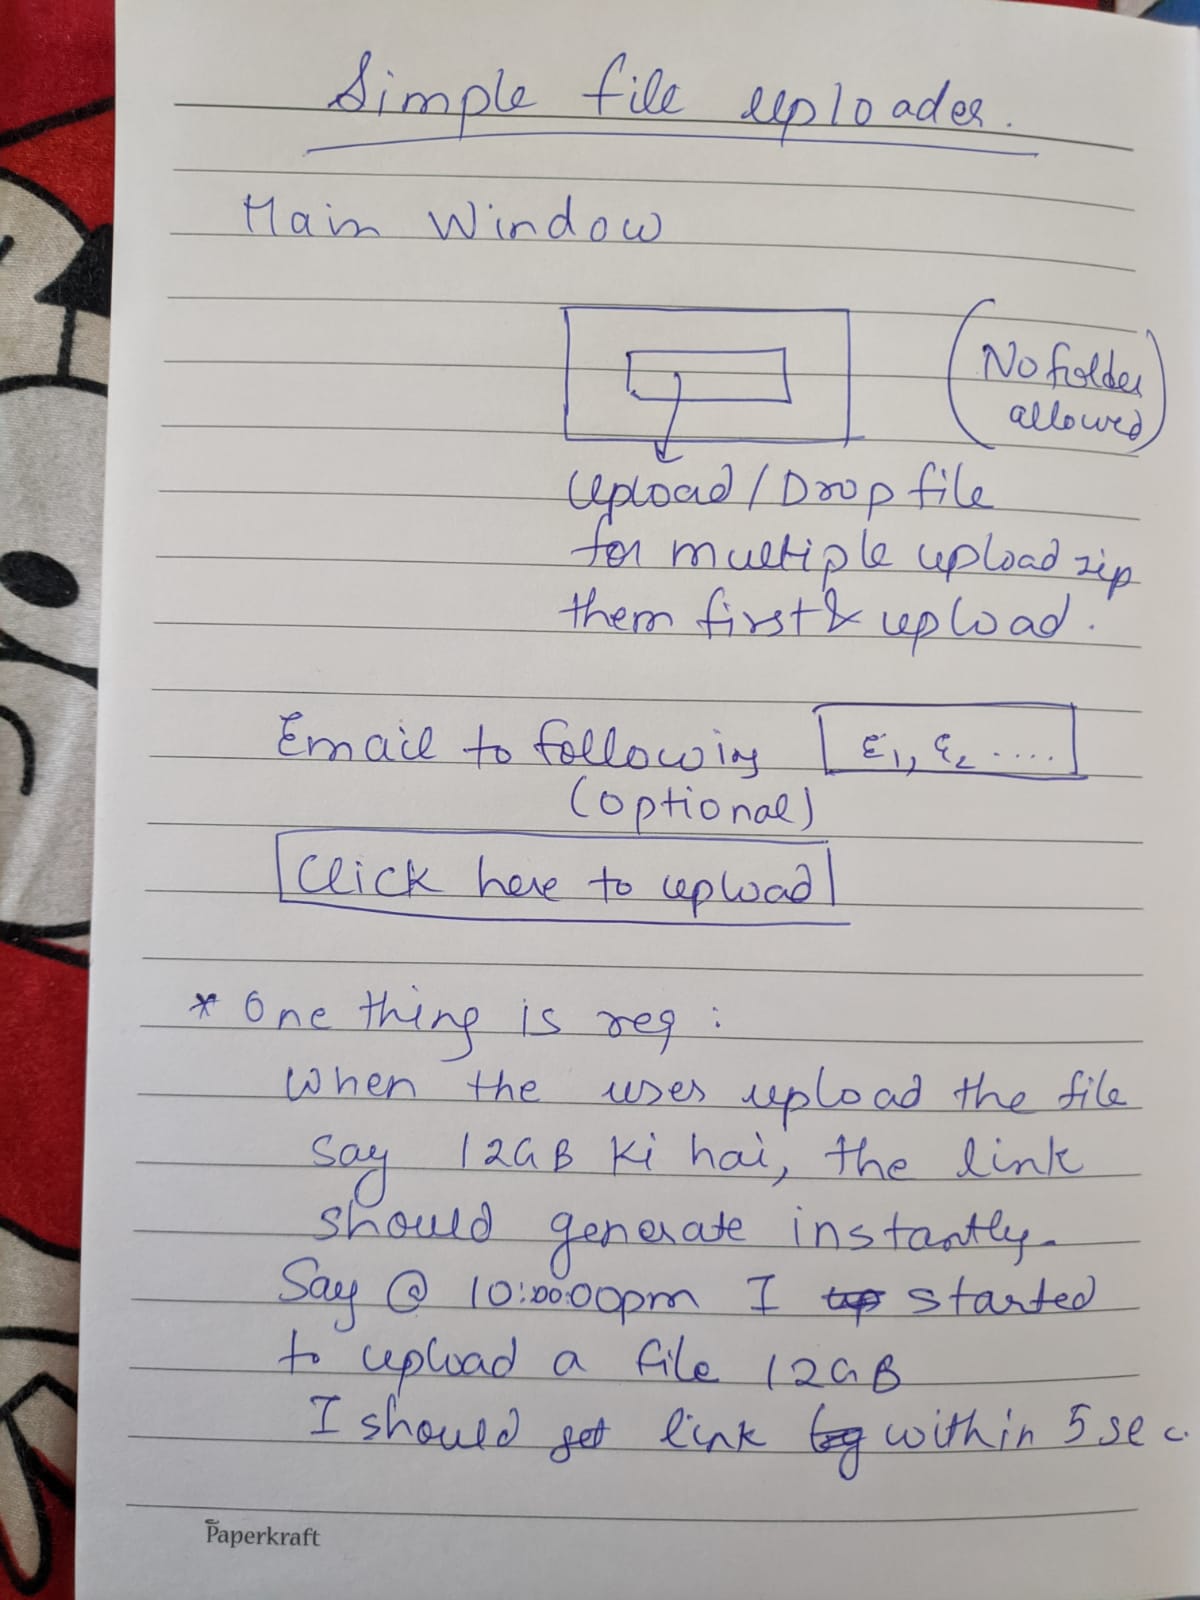 Simple file uploader.
Main Window
(No folder
allowed)
Upload/Drop file
for multiple upload zip
them first & upload.
Email to following E1, E2 .....
(optional)
Click here to upload
* One thing is req:
When the user upload the file
say 12GB ki hai, the link
should generate instantly.
Say @ 10:00:00pm I started
to upload a file 12GB
I should get link within 5 sec.
Paperkraft